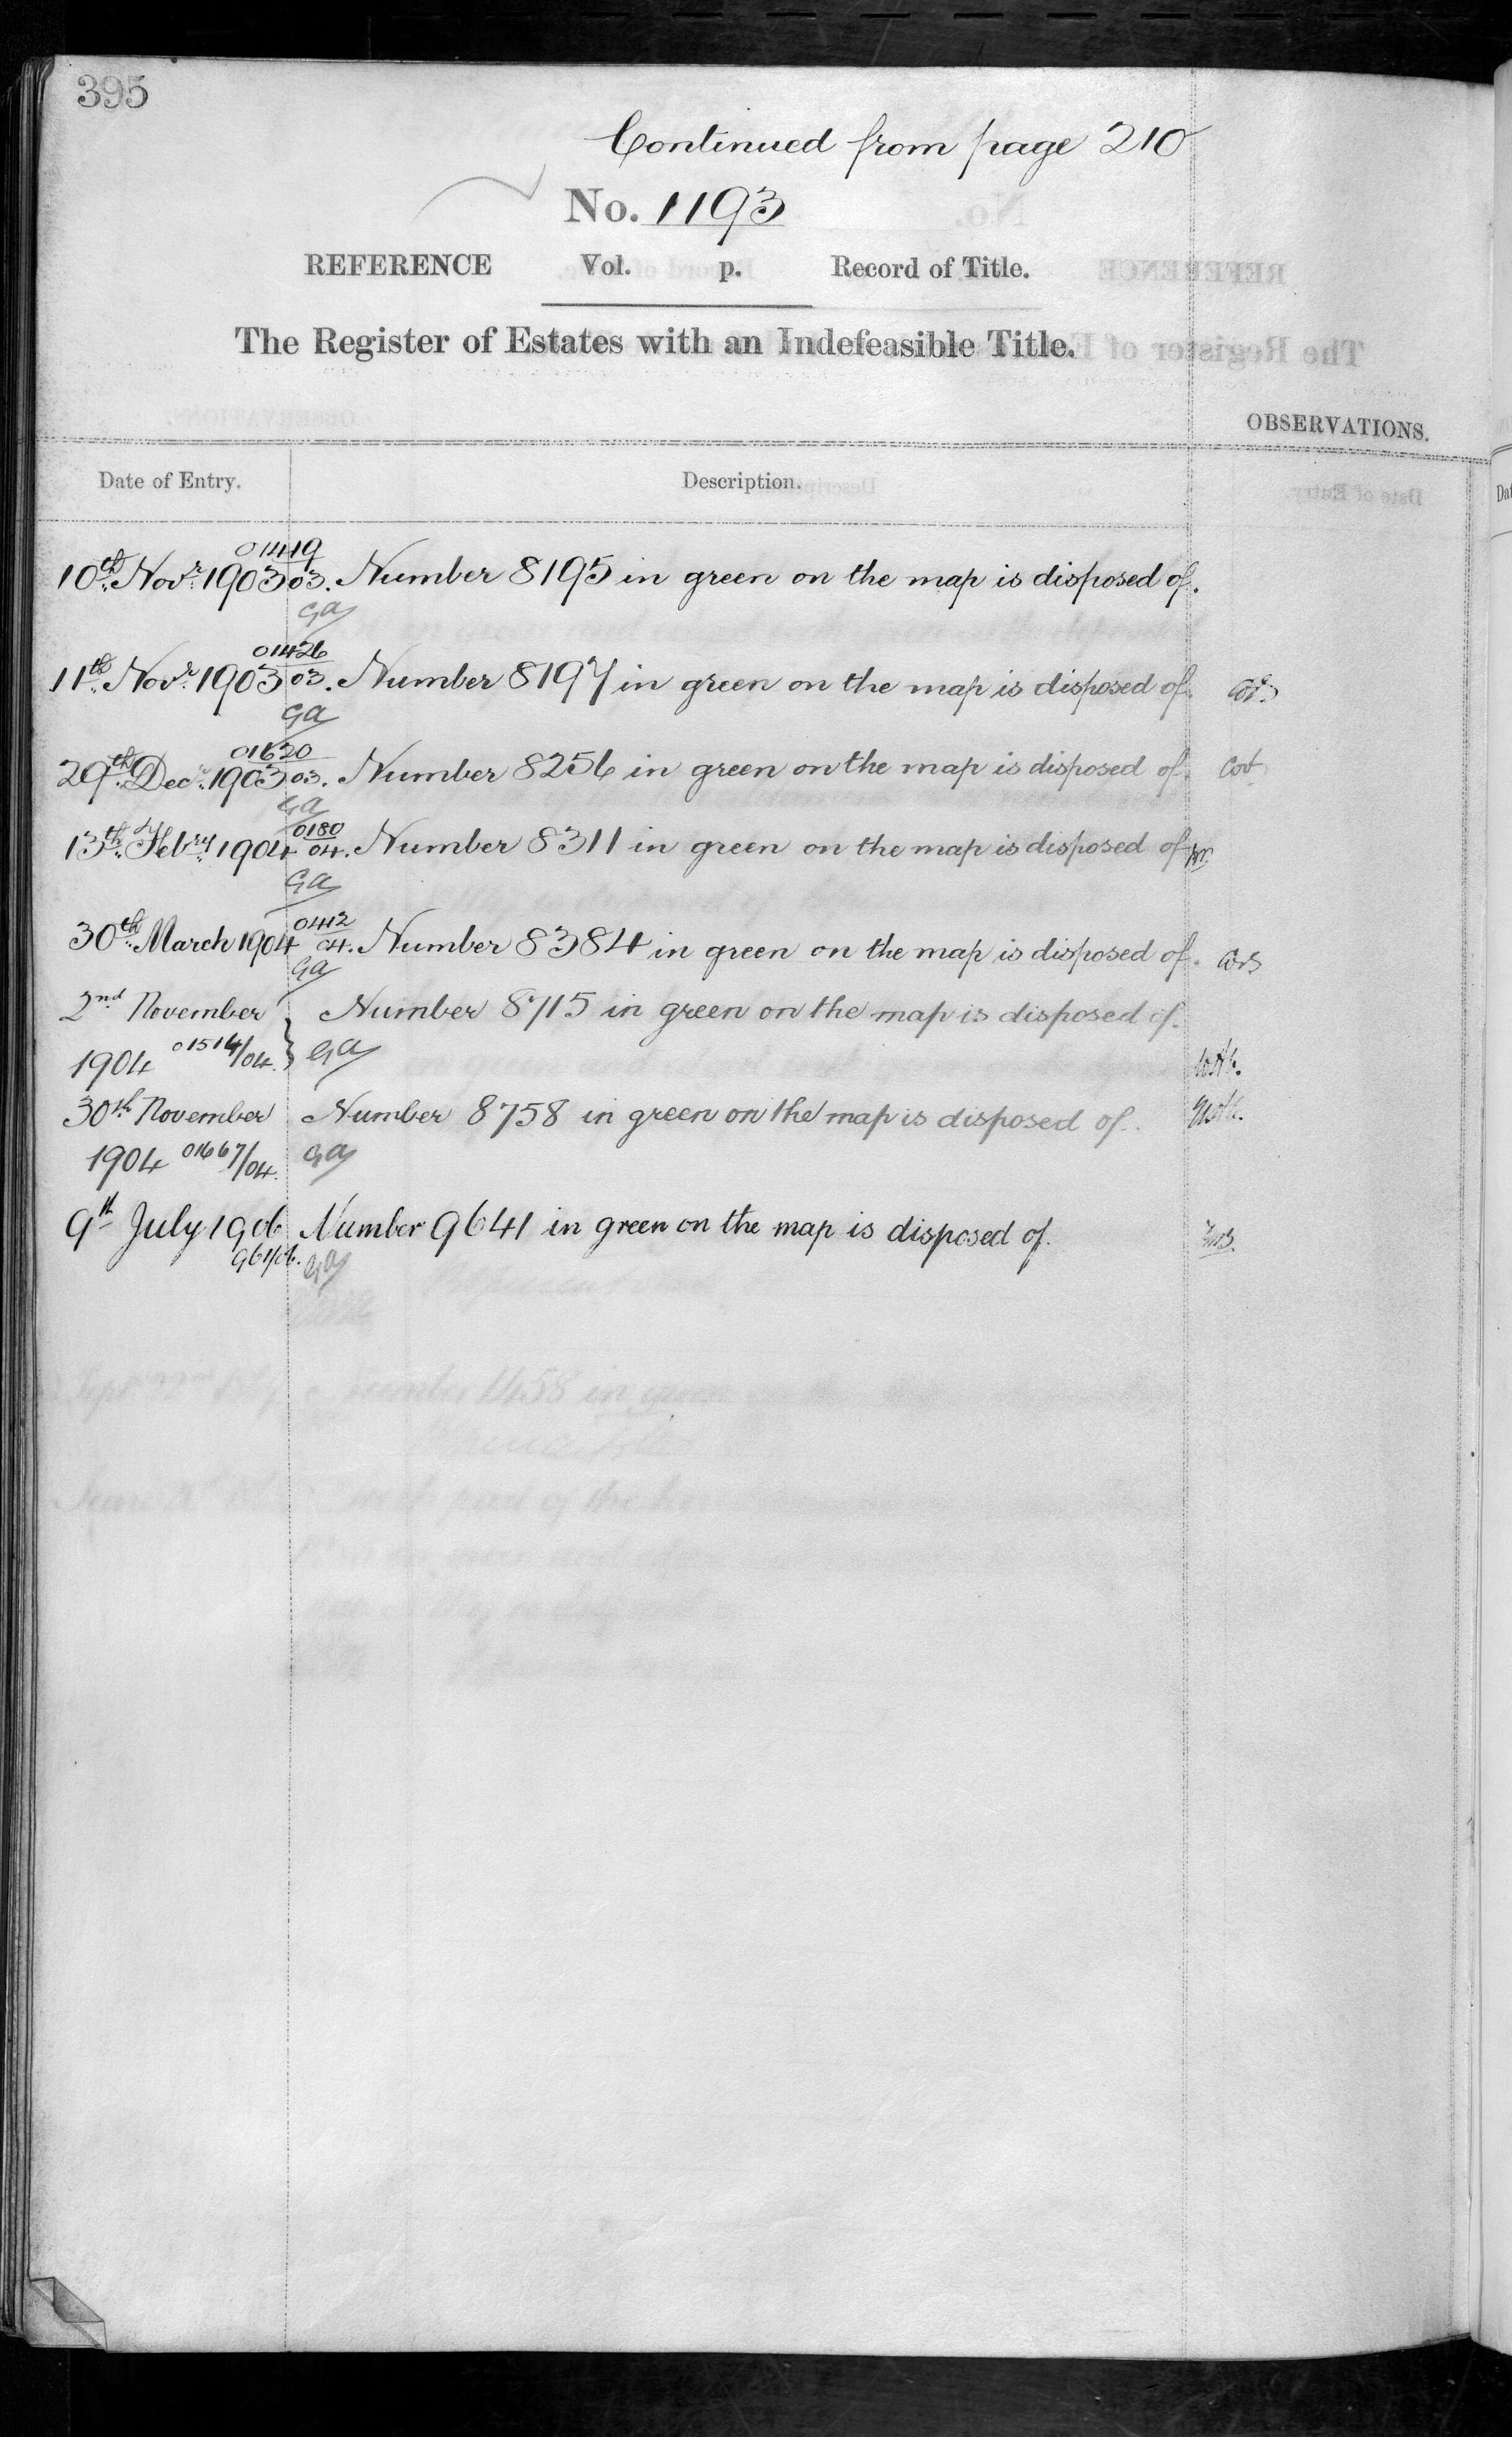 395
Continued from page 210
No. 1193
REFERENCE Vol. p. Record of Title.
The Register of Estates with an Indefeasible Title.
OBSERVATIONS.
Date of Entry. Description.
01419
10th Novr 1903 03. Number 8195 in green on the map is disposed of.
GA
01426
11th Novr 1903 03. Number 8197 in green on the map is disposed of.
GA
01620
29th Decr 1903 03. Number 8256 in green on the map is disposed of.
GA
0180
13th Febry 1904 04. Number 8311 in green on the map is disposed of
GA
0412
30th March 1904 04. Number 8384 in green on the map is disposed of.
GA
2nd November Number 8715 in green on the map is disposed of.
1904 01514/04. GA
30th November Number 8758 in green on the map is disposed of.
1904 01667/04. GA
9th July 1906 Number 9641 in green on the map is disposed of.
961/06. GA